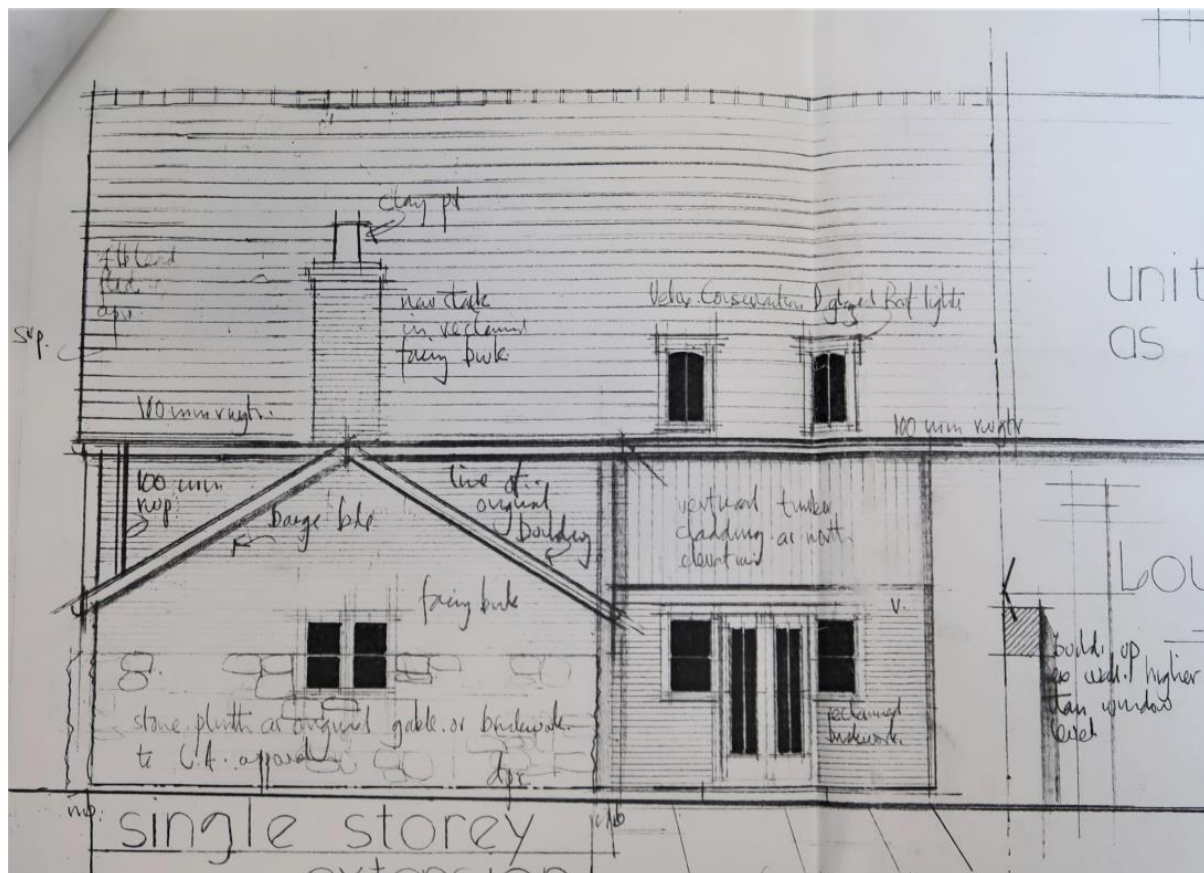 clay pt
new stack
in reclaimed
facing brick.
Velux Conservation D glazed Roof lights
unit
as
svp.
100 mm rwgtr.
100 mm rwgtr
100 mm
rwp
barge bde
line of
original
building
vertical timber
cladding as north
elevation
facing brick
v.
LOU
build up
ex wall higher
than window
level
stone plinth as original gable or brickwork
to L.A. approval
dpc
reclaimed
brickwork.
single storey
extension